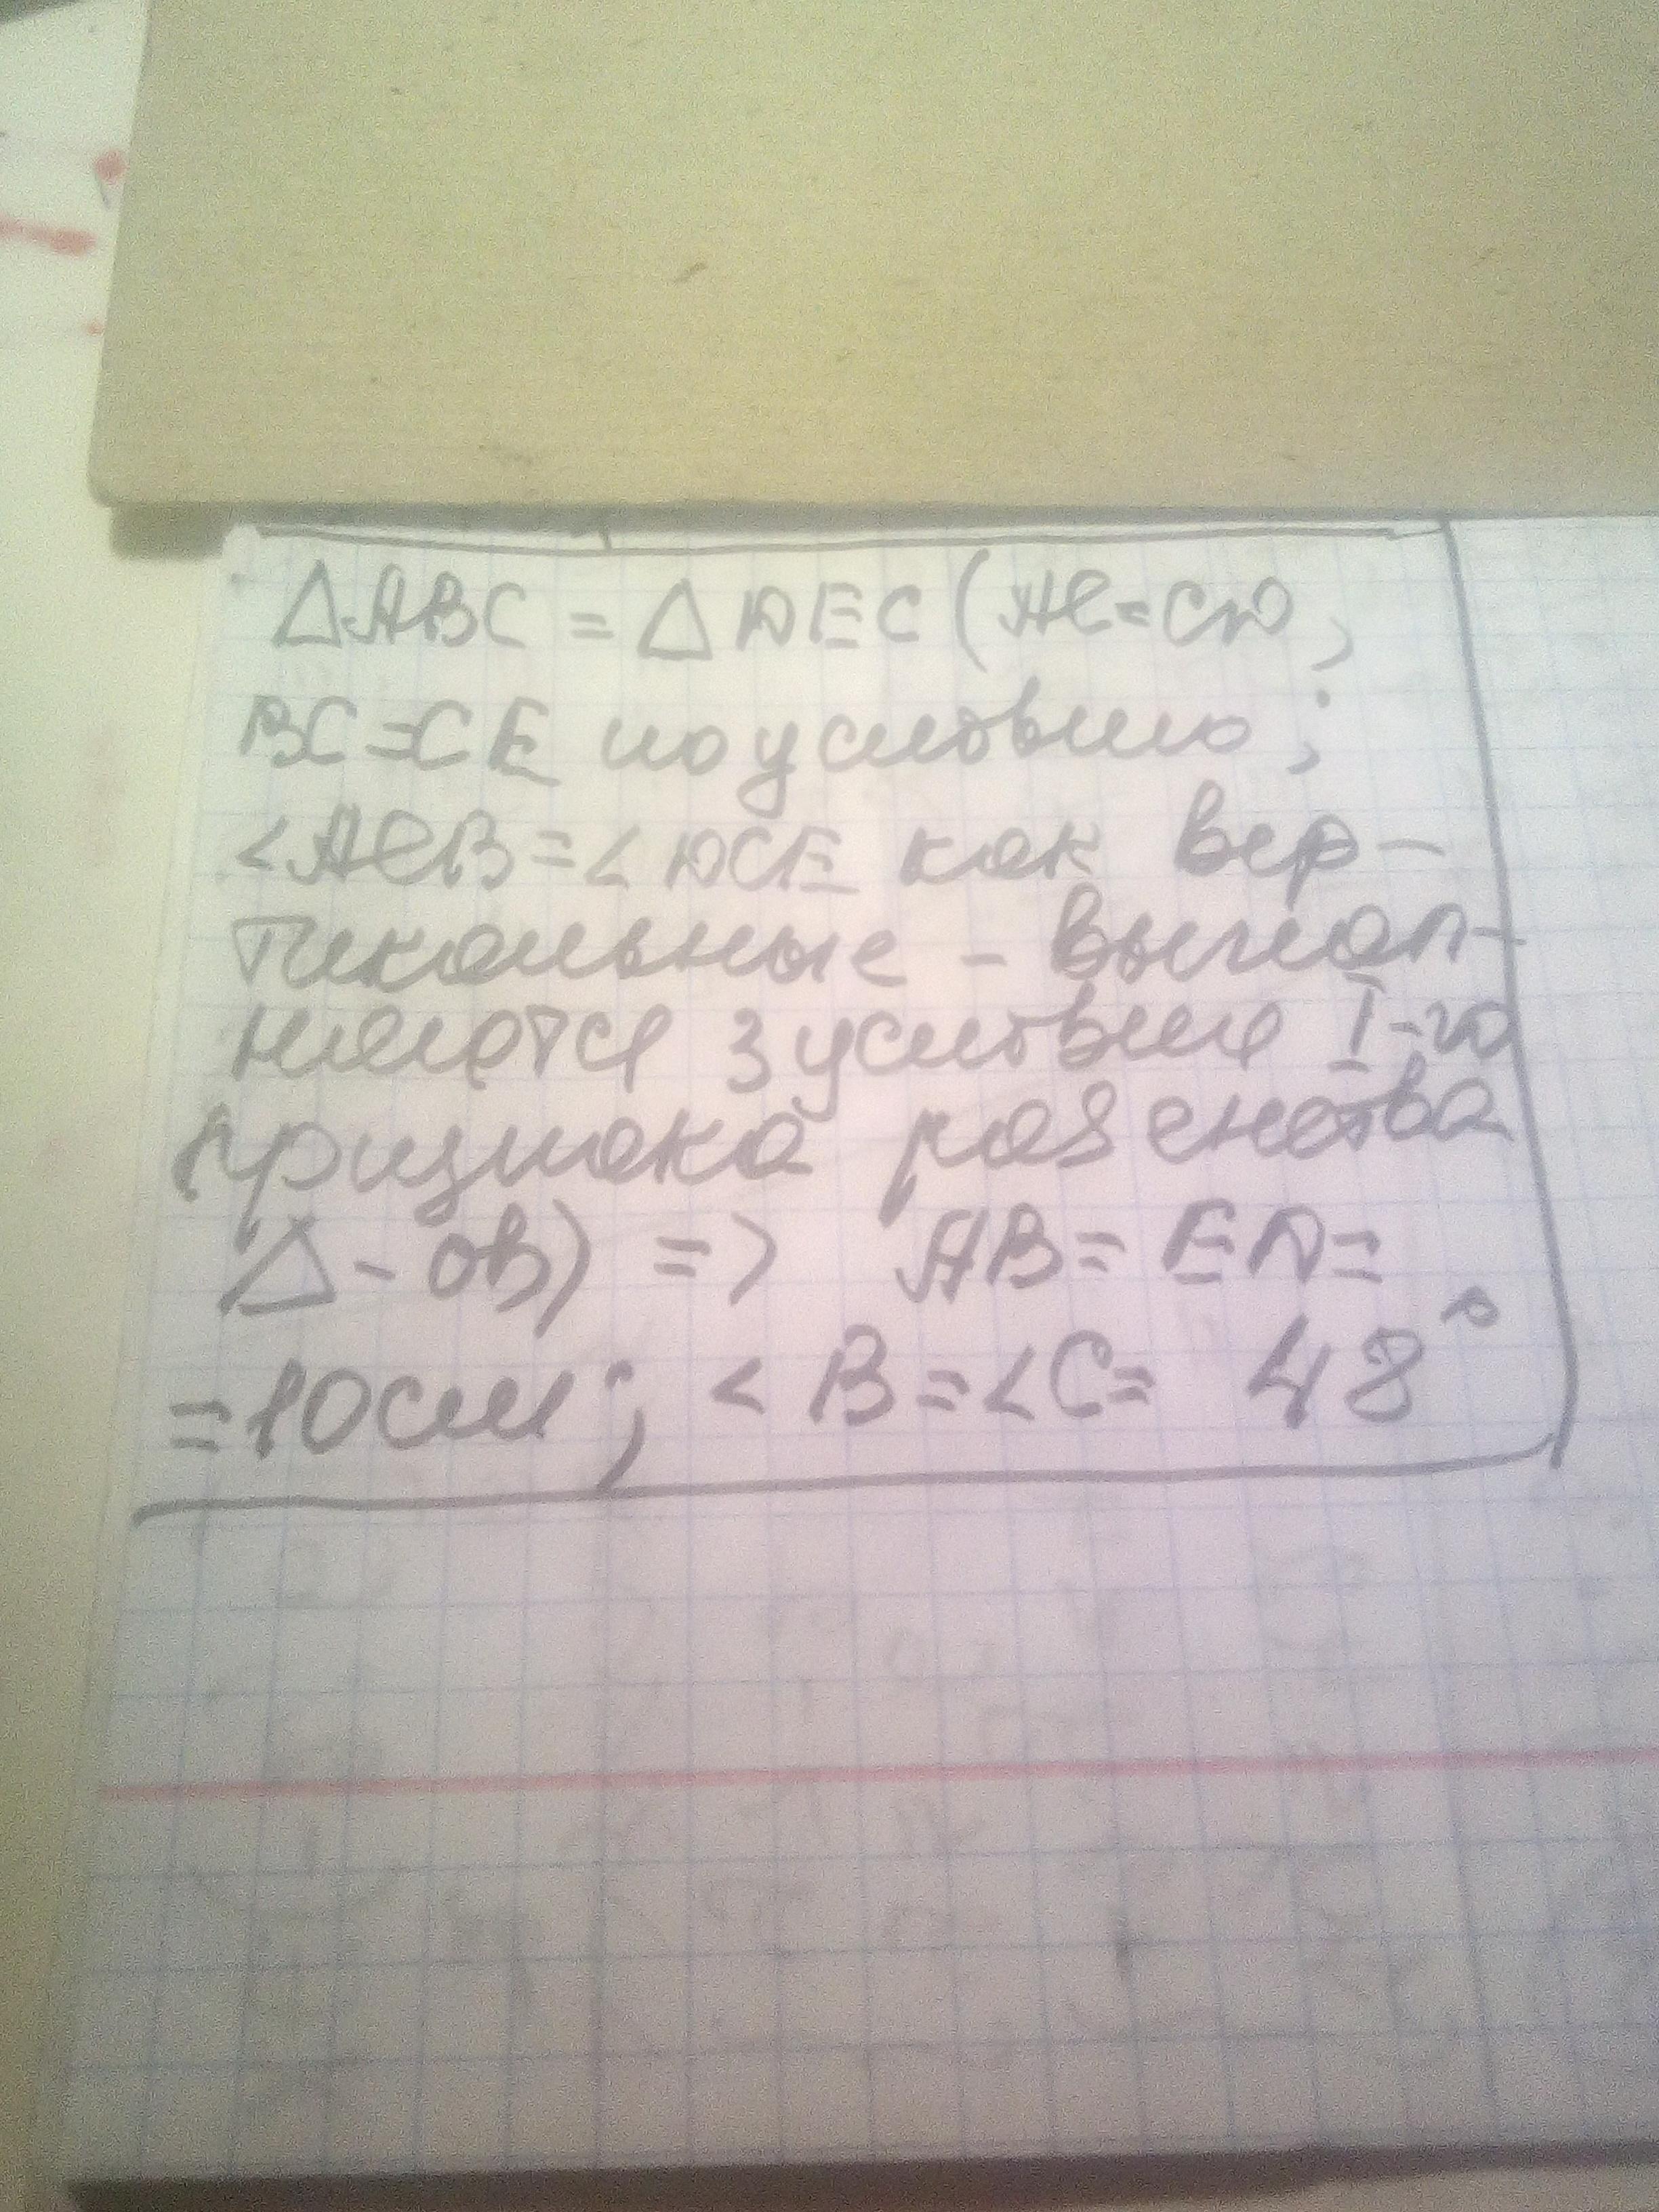 △ABC = △DEC (AC=CD,
BC=CE по условию;
<ACB=<DCE как вер-
тикальные - выпол-
няются 3 условия I-го
признака равенства
△-ов) => AB= ED=
=10см; <B=<C= 48°